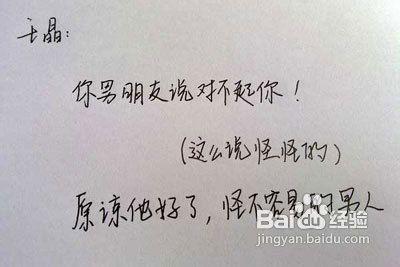 王晶：
你男朋友说对不起你！
（这么说怪怪的）
原谅他好了，怪不容易的男人
Baidu百度经验
jingyan.baidu.com